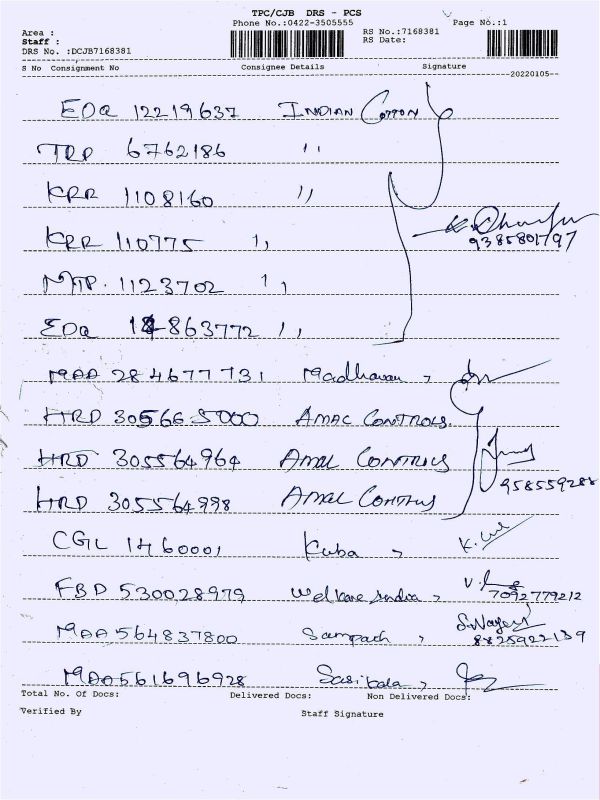 TPC/CJB DRS - PCS
Phone No.:0422-3505555 Page No.:1
Area : RS No.:7168381
Staff : RS Date:
DRS No. :DCJB7168381
S No Consignment No Consignee Details Signature
20220105
EDQ 12219637 INDIAN COTTON
TRP 6762186 ''
KRR 1108160 ''
KRR 110775 ''
MTP. 1123702 ''
9385801797
EDQ 863772 ''
MAA 284677731 Madhavan
HRD 305665000 AMAC CONTROLS.
HRD 305564964 AMAC
HRD 305564998 AMAC
958559288
CGL 1460001 Kuba
FBD 530028979 Welkare India 7092779212
MAA 564837800 Sampath S.Nagesh 8825922139
MAA 561696928 Sasibala
Total No. Of Docs: Delivered Docs: Non Delivered Docs:
Verified By Staff Signature